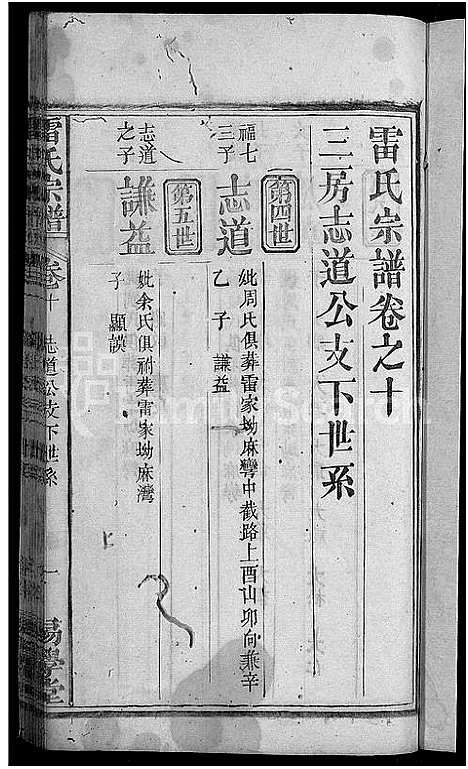 雷氏宗譜卷之十
三房志道公支下世系
第四世
福七
三子
志道
妣周氏俱葬雷家坳麻彎中截路上酉山卯向兼辛
乙 子 謙益
第五世
志道
之子
謙益
妣余氏俱祔葬雷家坳麻灣
子 顯謨
上
雷氏宗譜 卷十 志道公支下世系 一